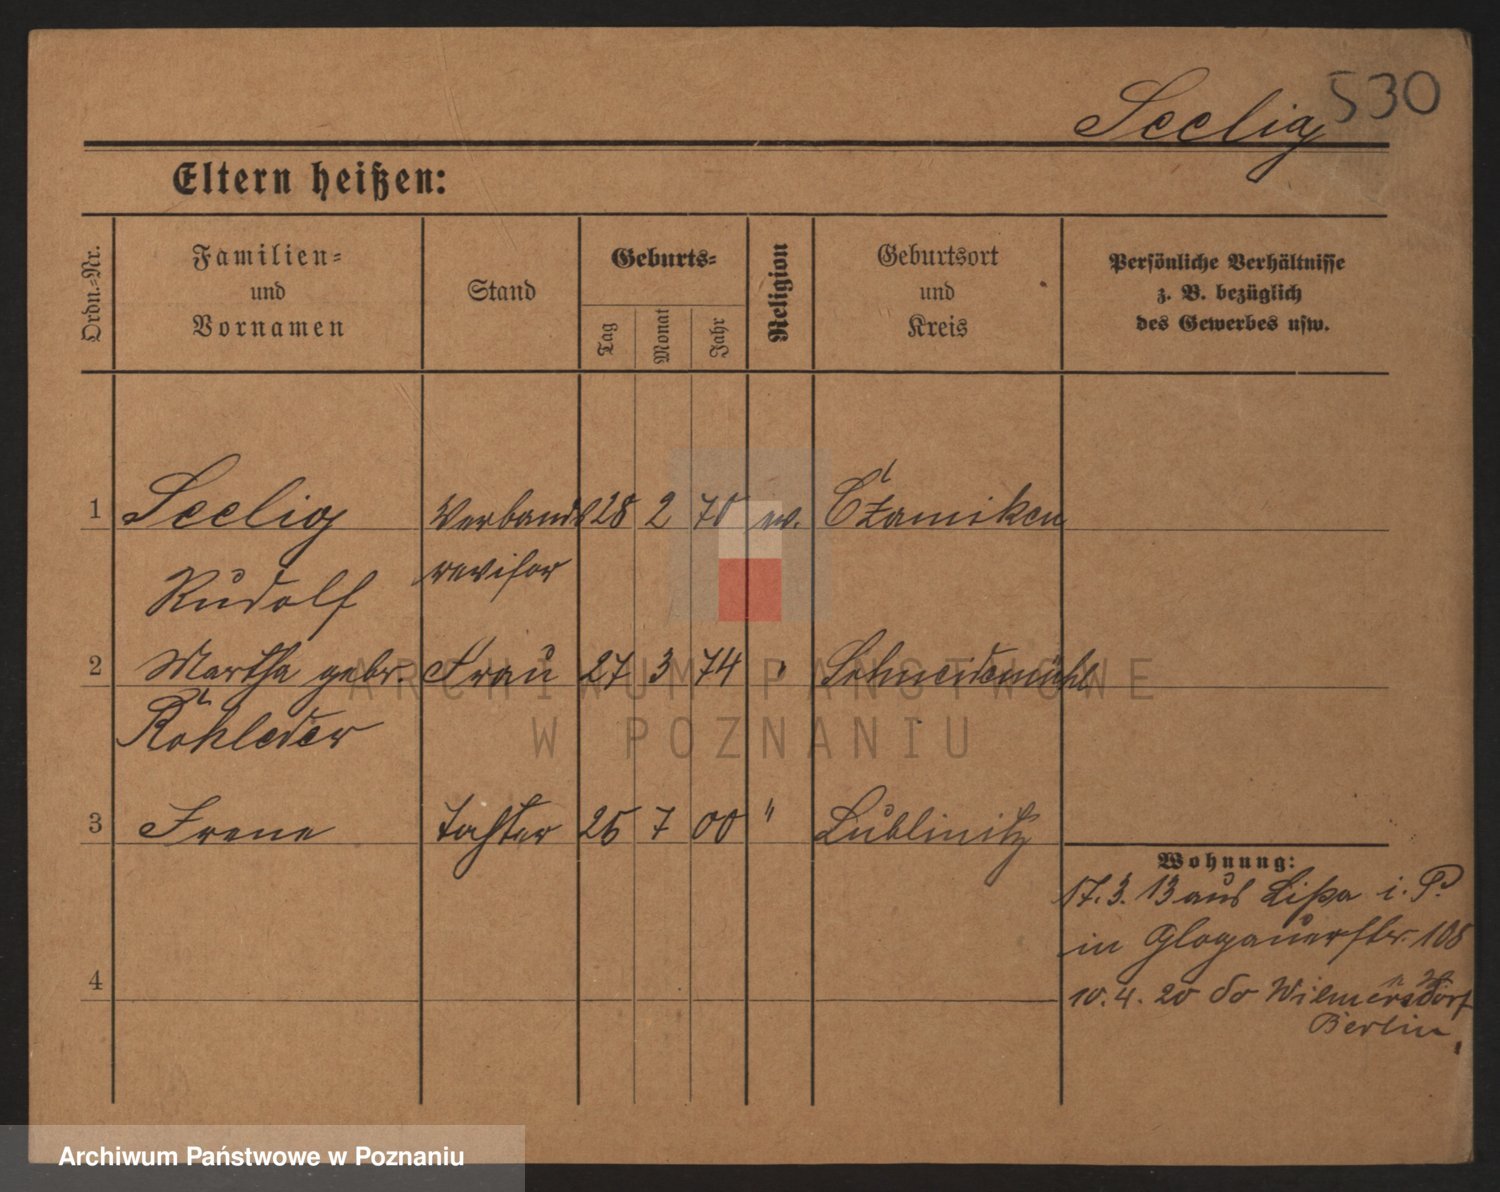 530
Seelig
Eltern heißen:
Ordn.-Nr.
Familien-
und
Vornamen
Stand
Geburts-
Tag
Monat
Jahr
Religion
Geburtsort
und
Kreis
Persönliche Verhältnisse
z. B. bezüglich
des Gewerbes usw.
1 Seelig Verbands 28 2 70 ev. Czarniken
Rudolf revisor
2 Martha gebr. Frau 27 3 74 " Schneidemühl
Röhleder
3 Irene Tochter 25 7 00 " Lublinitz
Wohnung:
17.3.13 aus Lissa i. P.
in Glogauerstr. 108
4
10.4.20 Wilmersdorf
Berlin
ARCHIWUM PAŃSTWOWE
W POZNANIU
Archiwum Państwowe w Poznaniu